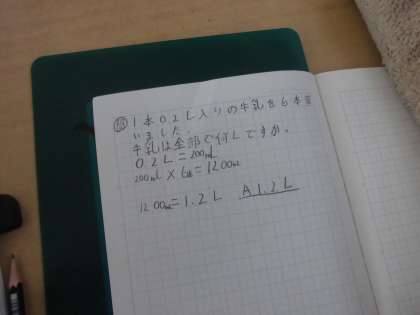 問 1本0.2L入りの牛乳を6本買
いました。
牛乳は全部で何Lですか。
0.2L=200mL
200mL×6本=1200mL
1200mL=1.2L A 1.2L